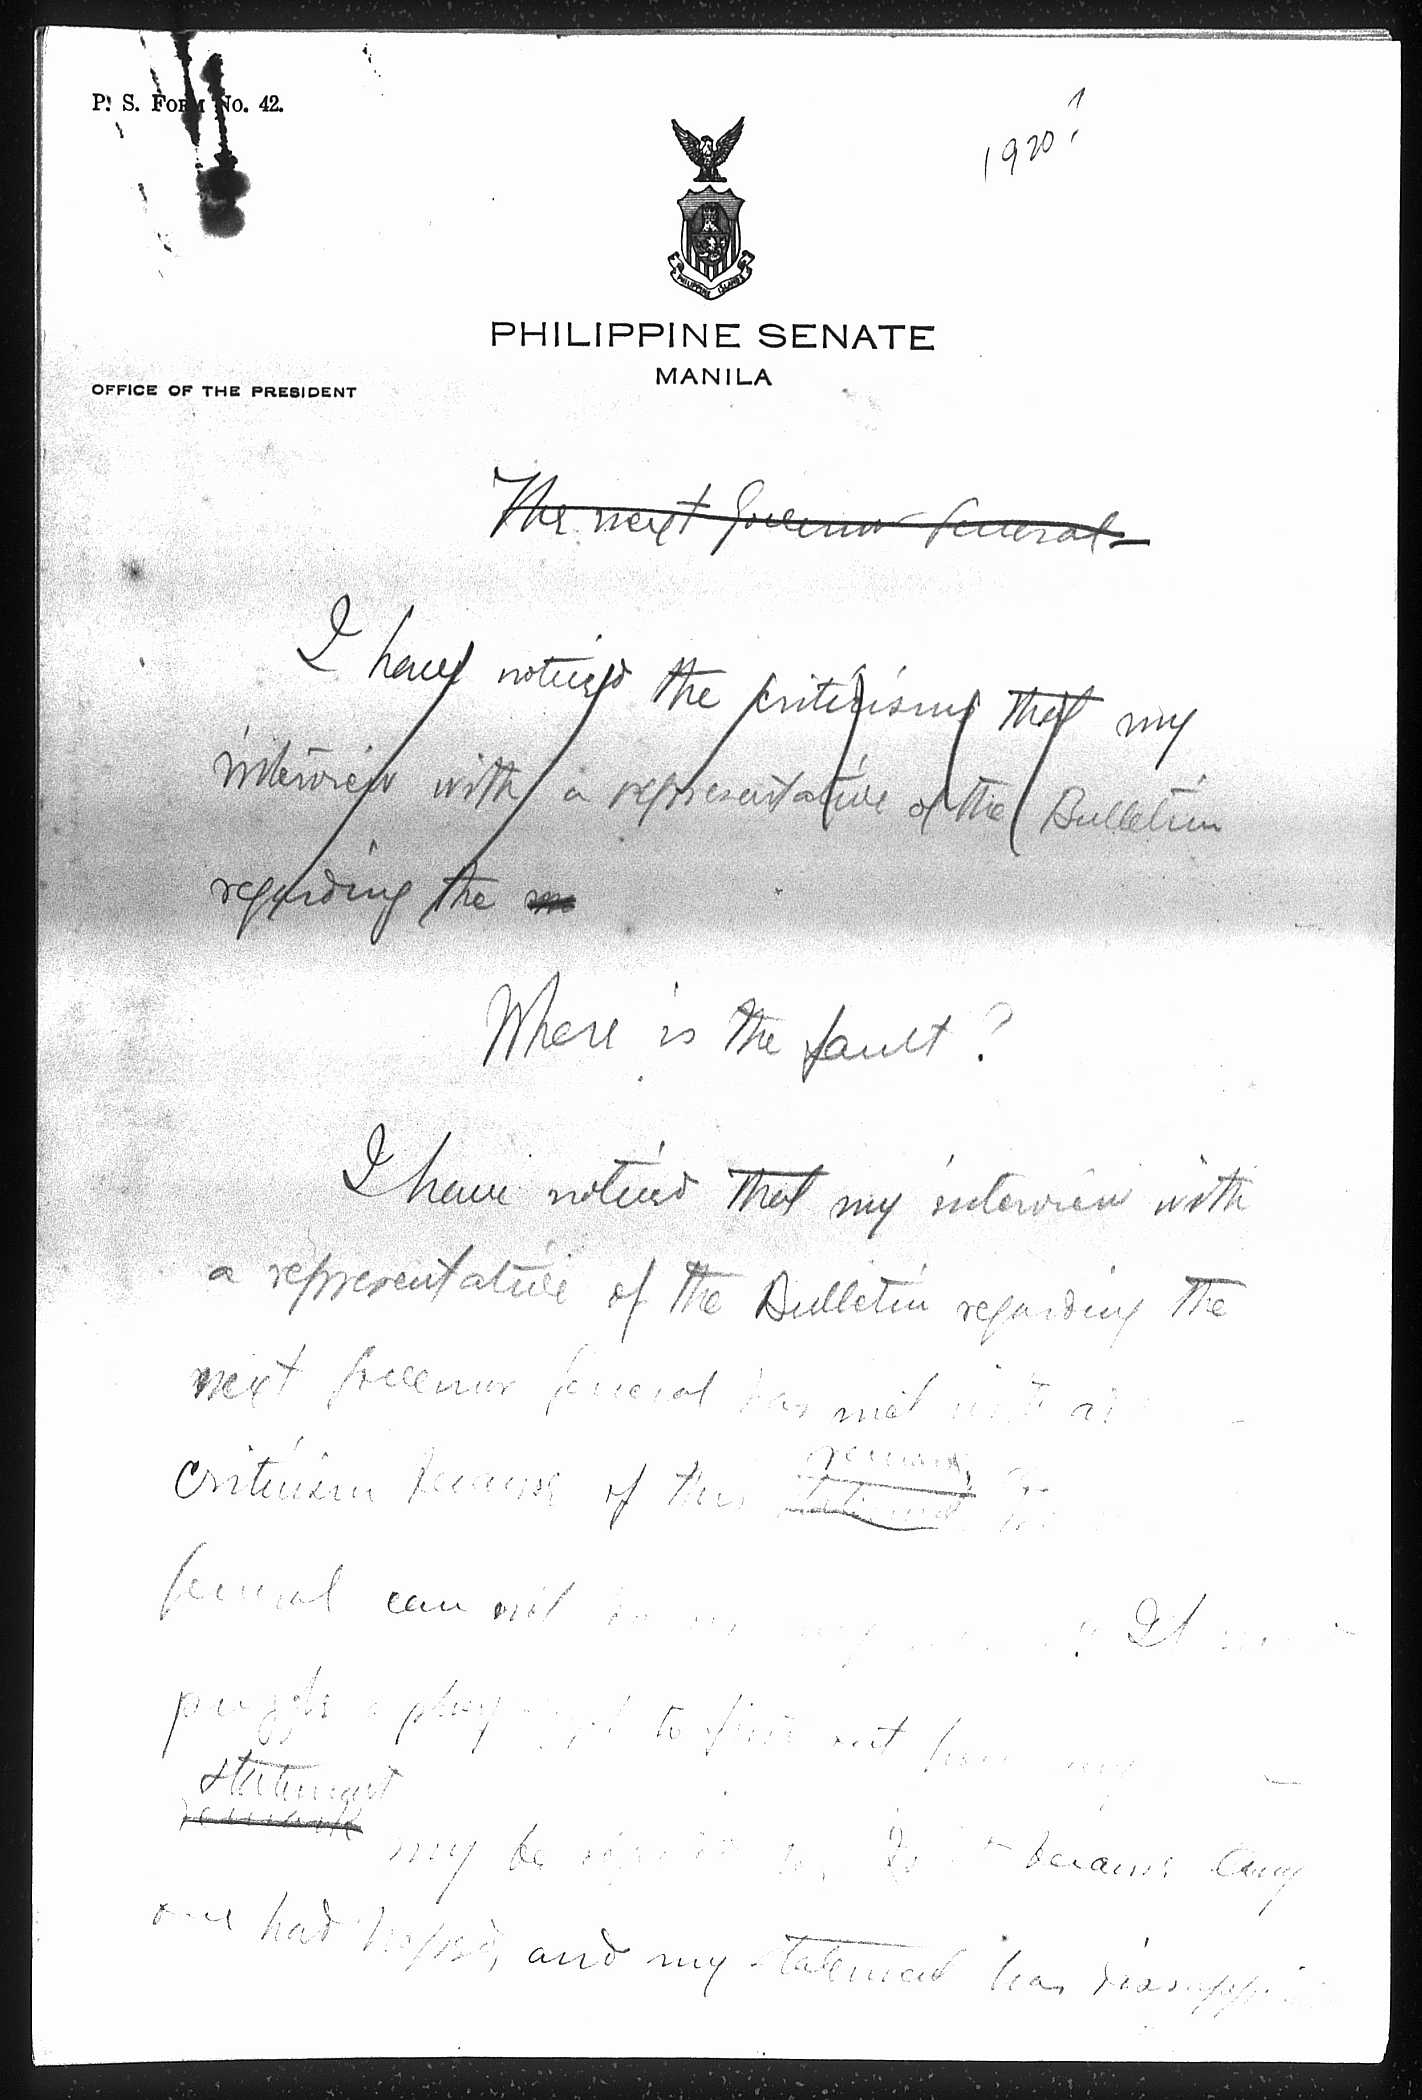 P. S. FORM No. 42.
1920?
PHILIPPINE ISLANDS
PHILIPPINE SENATE
MANILA
OFFICE OF THE PRESIDENT
The next Governor General
I have noticed the criticisms that my
interview with a representative of the Bulletin
regarding the
Where is the fault?
I have noticed that my interview with
a representative of the Bulletin regarding the
next Governor General has met with
remark
criticism because of this
General can not It
puzzle to find out how my
statement
remark
my be Is it because any
one had hoped, and my statement has